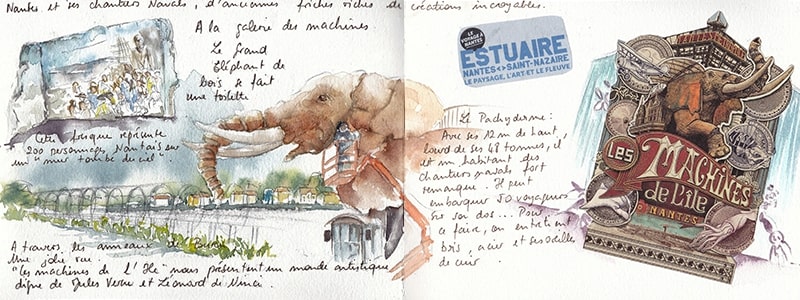 Nantes et ses chantiers Navals, d'anciennes friches riches de créations incroyables.
A la galerie des machines.
Le Grand
Éléphant de
bois se fait
une toilette
Cette fresque représente
200 personnages Nantais sur
un "mur tombé du ciel"
A travers les anneaux de Buren
Une jolie vue.
"Les machines de l'Ile" nous présentent un monde artistique
digne de Jules Verne et Léonard de Vinci.
LE VOYAGE À NANTES
ESTUAIRE
NANTES <> SAINT-NAZAIRE
LE PAYSAGE, L'ART ET LE FLEUVE
Le Pachyderme:
Avec ses 12 m de haut,
lourd de ses 48 tonnes, il
est un habitant des
chantiers navals fort
remarqué. Il peut
embarquer 50 voyageurs
sur son dos... Pour
ce faire, on entretient
bois, acier et ses oreilles
de cuir.
LES
MACHINES
de L'ÎLE
NANTES